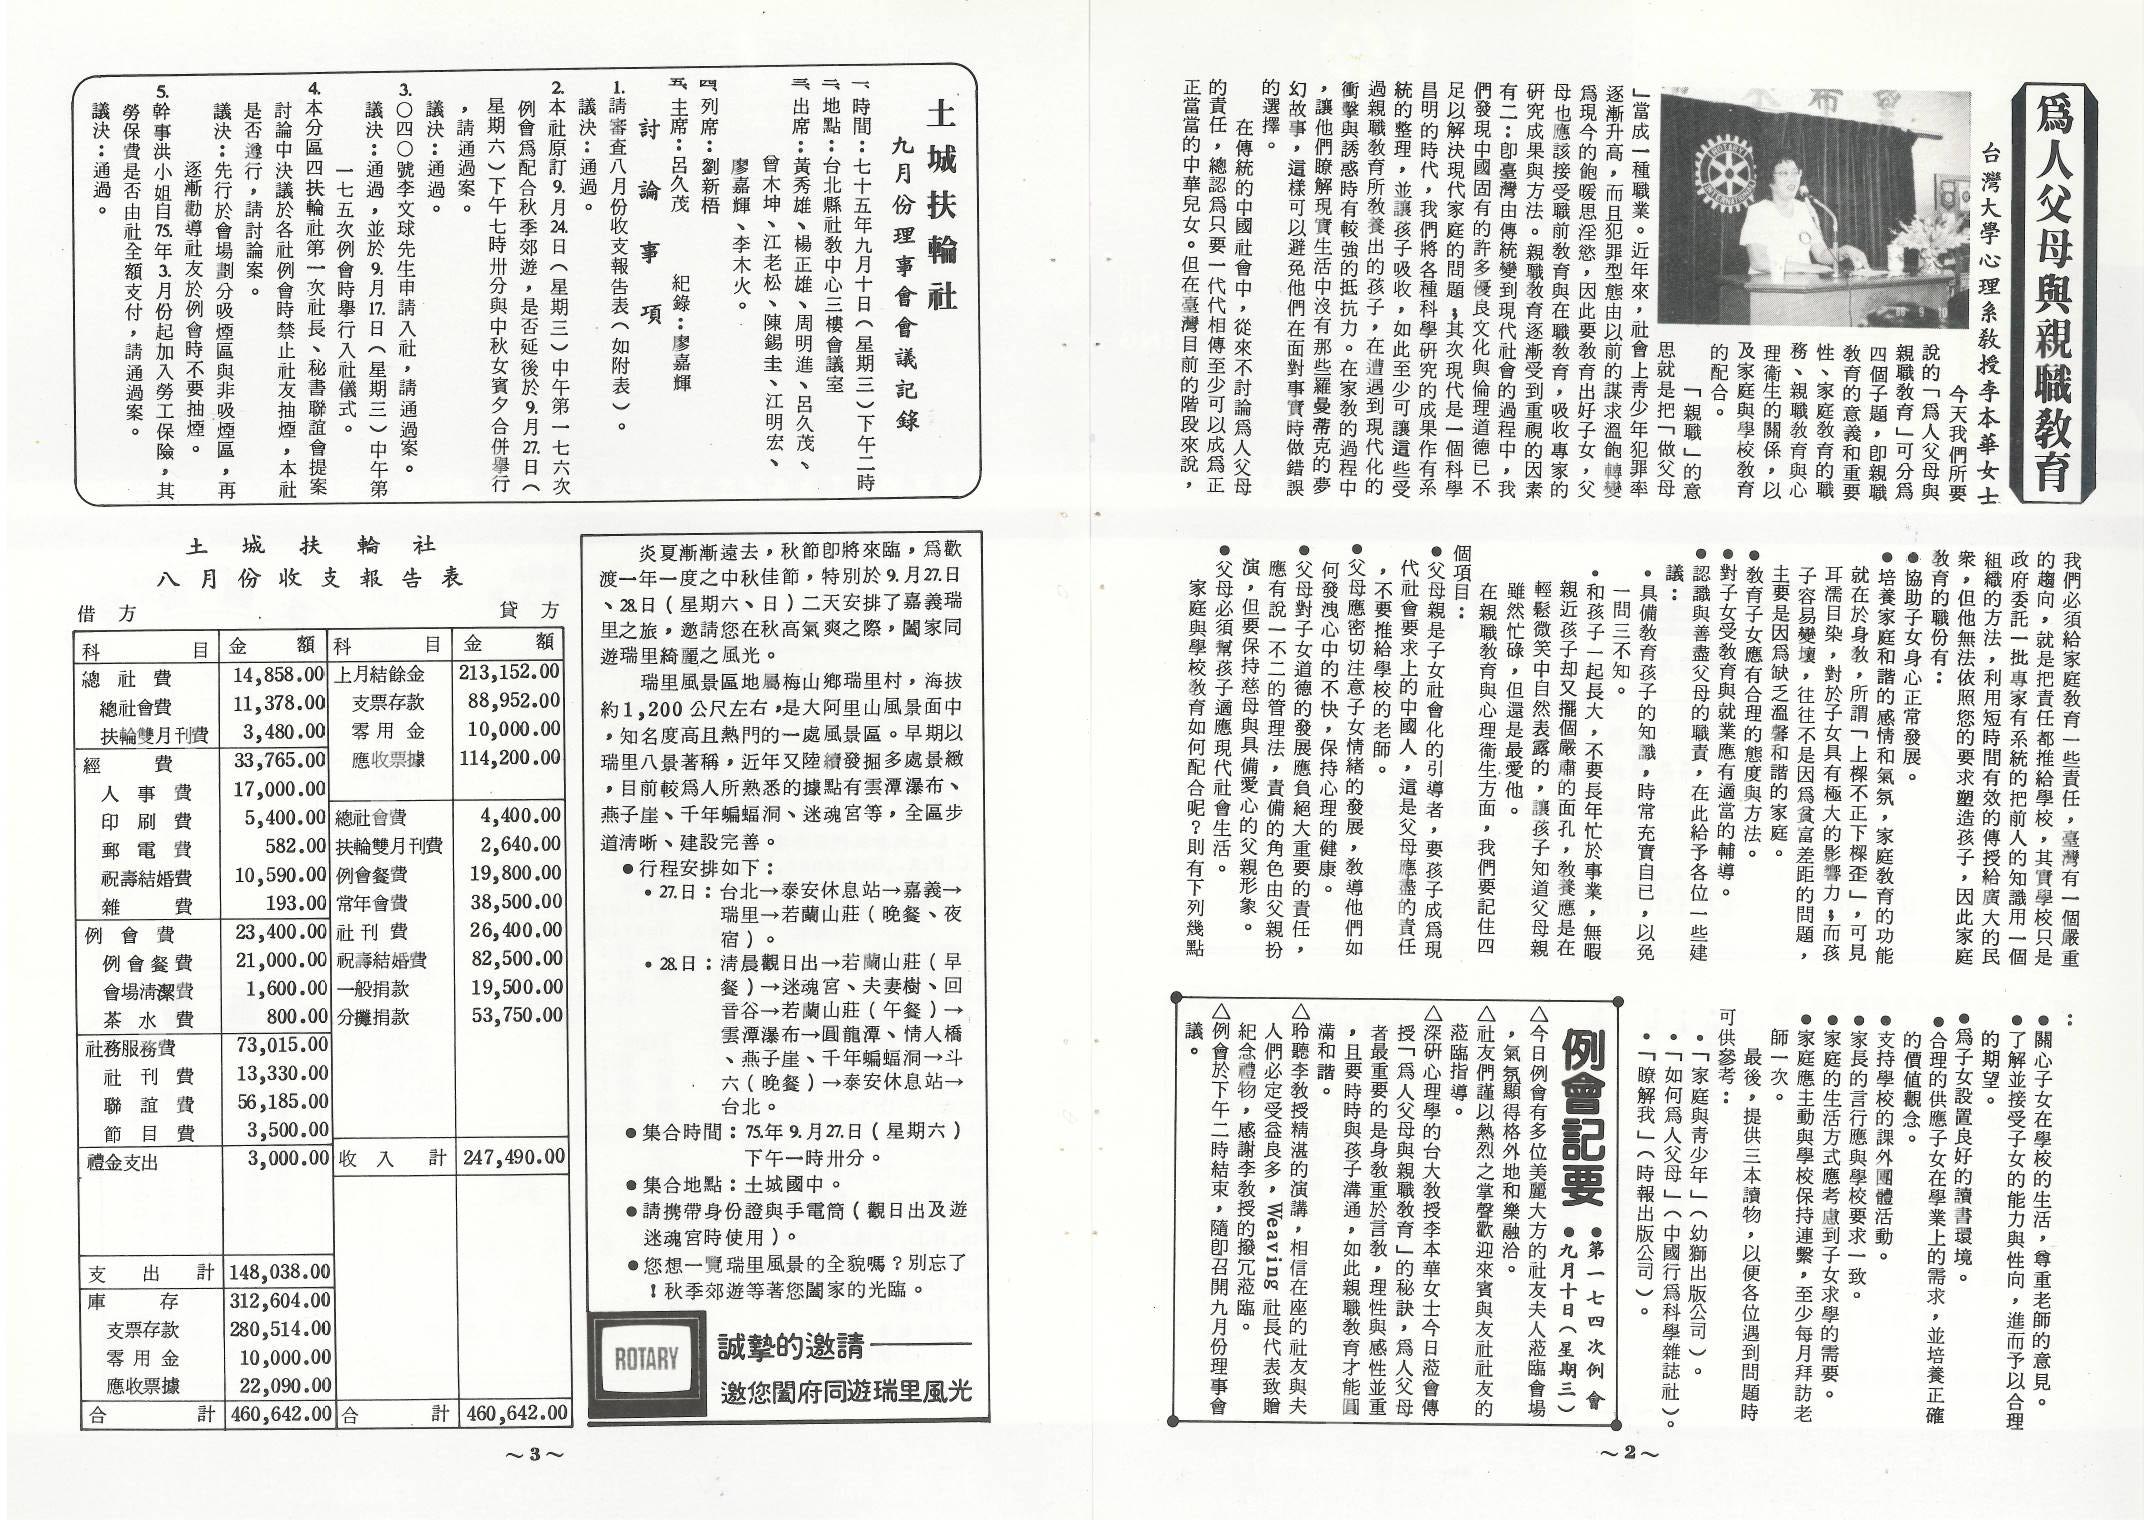 爲人父母與親職敎育
台灣大學心理系敎授李本華女士
今天我們所要
說的「爲人父母與
親職敎育」可分爲
四個子題，卽親職
敎育的意義和重要
性、家庭敎育的職
務、親職敎育與心
理衞生的關係，以
及家庭與學校敎育
的配合。
「親職」的意
思就是把「做父母
」當成一種職業。近年來，社會上靑少年犯罪率
逐漸升高，而且犯罪型態由以前的謀求溫飽轉變
爲現今的飽暖思淫慾，因此要敎育出好子女，父
母也應該接受職前敎育與在職敎育，吸收專家的
硏究成果與方法。親職敎育逐漸受到重視的因素
有二：卽臺灣由傳統變到現代社會的過程中，我
們發現中國固有的許多優良文化與倫理道德已不
足以解決現代家庭的問題；其次現代是一個科學
昌明的時代，我們將各種科學硏究的成果作有系
統的整理，並讓孩子吸收，如此至少可讓這些受
過親職敎育所敎養出的孩子，在遭遇到現代化的
衝擊與誘惑時有較強的抵抗力。在家敎的過程中
，讓他們瞭解現實生活中沒有那些羅曼蒂克的夢
幻故事，這樣可以避免他們在面對事實時做錯誤
的選擇。
在傳統的中國社會中，從來不討論爲人父母
的責任，總認爲只要一代代相傳至少可以成爲正
正當當的中華兒女。但在臺灣目前的階段來說，
我們必須給家庭敎育一些責任，臺灣有一個嚴重
的趨向，就是把責任都推給學校，其實學校只是
政府委託一批專家有系統的把前人的知識用一個
組織的方法，利用短時間有效的傳授給廣大的民
衆，但他無法依照您的要求塑造孩子，因此家庭
敎育的職份有：
●協助子女身心正常發展。
●培養家庭和諧的感情和氣氛，家庭敎育的功能
就在於身敎，所謂「上樑不正下樑歪」，可見
耳濡目染，對於子女具有極大的影響力；而孩
子容易變壞，往往不是因爲貧富差距的問題，
主要是因爲缺乏溫馨和諧的家庭。
●敎育子女應有合理的態度與方法。
●對子女受敎育與就業應有適當的輔導。
●認識與善盡父母的職責，在此給予各位一些建
議：
•具備敎育孩子的知識，時常充實自己，以免
一問三不知。
•和孩子一起長大，不要長年忙於事業，無暇
親近孩子却又擺個嚴肅的面孔，敎養應是在
輕鬆微笑中自然表露的，讓孩子知道父母親
雖然忙碌，但還是最愛他。
在親職敎育與心理衞生方面，我們要記住四
個項目：
●父母親是子女社會化的引導者，要孩子成爲現
代社會要求上的中國人，這是父母應盡的責任
，不要推給學校的老師。
●父母應密切注意子女情緒的發展，敎導他們如
何發洩心中的不快，保持心理的健康。
●父母對子女道德的發展應負絕大重要的責任，
應有說一不二的管理法，責備的角色由父親扮
演，但要保持慈母與具備愛心的父親形象。
●父母必須幫孩子適應現代社會生活。
家庭與學校敎育如何配合呢？則有下列幾點
：
●關心子女在學校的生活，尊重老師的意見。
●了解並接受子女的能力與性向，進而予以合理
的期望。
●爲子女設置良好的讀書環境。
●合理的供應子女在學業上的需求，並培養正確
的價値觀念。
●支持學校的課外團體活動。
●家長的言行應與學校要求一致。
●家庭的生活方式應考慮到子女求學的需要。
●家庭應主動與學校保持連繫，至少每月拜訪老
師一次。
最後，提供三本讀物，以便各位遇到問題時
可供參考：
•「家庭與靑少年」（幼獅出版公司）。
•「如何爲人父母」（中國行爲科學雜誌社）。
•「瞭解我」（時報出版公司）。
例會記要
●第一七四次例會
●九月十日（星期三）
△今日例會有多位美麗大方的社友夫人蒞臨會場
，氣氛顯得格外地和樂融洽。
△社友們謹以熱烈之掌聲歡迎來賓與友社社友的
蒞臨指導。
△深硏心理學的台大敎授李本華女士今日蒞會傳
授「爲人父母與親職敎育」的秘訣，爲人父母
者最重要的是身敎重於言敎，理性與感性並重
，且要時時與孩子溝通，如此親職敎育才能圓
滿和諧。
△聆聽李敎授精湛的演講，相信在座的社友與夫
人們必定受益良多，Weaving 社長代表致贈
紀念禮物，感謝李敎授的撥冗蒞臨。
△例會於下午二時結束，隨卽召開九月份理事會
議。
～2～
土城扶輪社
九月份理事會會議記錄
一、時間：七十五年九月十日（星期三）下午二時
二、地點：台北縣社敎中心三樓會議室
三、出席：黃秀雄、楊正雄、周明進、呂久茂、
曾木坤、江老松、陳錫圭、江明宏、
廖嘉輝、李木火。
四、列席：劉新梧
五、主席：呂久茂　紀錄：廖嘉輝
討論事項
1.請審查八月份收支報告表（如附表）。
議決：通過。
2.本社原訂9.月24.日（星期三）中午第一七六次
例會爲配合秋季郊遊，是否延後於9.月27.日（
星期六）下午七時卅分與中秋女賓夕合併擧行
，請通過案。
議決：通過。
3.○四○號李文球先生申請入社，請通過案。
議決：通過，並於9.月17.日（星期三）中午第
一七五次例會時擧行入社儀式。
4.本分區四扶輪社第一次社長、秘書聯誼會提案
討論中決議於各社例會時禁止社友抽煙，本社
是否遵行，請討論案。
議決：先行於會場劃分吸煙區與非吸煙區，再
逐漸勸導社友於例會時不要抽煙。
5.幹事洪小姐自75.年3.月份起加入勞工保險，其
勞保費是否由社全額支付，請通過案。
議決：通過。
土城扶輪社
八月份收支報告表
借方　貸方
科目　金額　科目　金額
總社費　14,858.00　上月結餘金　213,152.00
總社會費　11,378.00　支票存款　88,952.00
扶輪雙月刊費　3,480.00　零用金　10,000.00
經費　33,765.00　應收票據　114,200.00
人事費　17,000.00
印刷費　5,400.00　總社會費　4,400.00
郵電費　582.00　扶輪雙月刊費　2,640.00
祝壽結婚費　10,590.00　例會餐費　19,800.00
雜費　193.00　常年會費　38,500.00
例會費　23,400.00　社刊費　26,400.00
例會餐費　21,000.00　祝壽結婚費　82,500.00
會場淸潔費　1,600.00　一般捐款　19,500.00
茶水費　800.00　分攤捐款　53,750.00
社務服務費　73,015.00
社刊費　13,330.00
聯誼費　56,185.00
節目費　3,500.00
禮金支出　3,000.00　收入計　247,490.00
支出計　148,038.00
庫存　312,604.00
支票存款　280,514.00
零用金　10,000.00
應收票據　22,090.00
合計　460,642.00　合計　460,642.00
炎夏漸漸遠去，秋節卽將來臨，爲歡
渡一年一度之中秋佳節，特別於9.月27.日
、28.日（星期六、日）二天安排了嘉義瑞
里之旅，邀請您在秋高氣爽之際，闔家同
遊瑞里綺麗之風光。
瑞里風景區地屬梅山鄉瑞里村，海拔
約1,200公尺左右，是大阿里山風景面中
，知名度高且熱門的一處風景區。早期以
瑞里八景著稱，近年又陸續發掘多處景緻
，目前較爲人所熟悉的據點有雲潭瀑布、
燕子崖、千年蝙蝠洞、迷魂宮等，全區步
道淸晰、建設完善。
●行程安排如下：
•27.日：台北→泰安休息站→嘉義→
瑞里→若蘭山莊（晚餐、夜
宿）。
•28.日：淸晨觀日出→若蘭山莊（早
餐）→迷魂宮、夫妻樹、回
音谷→若蘭山莊（午餐）→
雲潭瀑布→圓龍潭、情人橋
、燕子崖、千年蝙蝠洞→斗
六（晚餐）→泰安休息站→
台北。
●集合時間：75.年9.月27.日（星期六）
下午一時卅分。
●集合地點：土城國中。
●請携帶身份證與手電筒（觀日出及遊
迷魂宮時使用）。
●您想一覽瑞里風景的全貌嗎？別忘了
！秋季郊遊等著您闔家的光臨。
ROTARY
誠摯的邀請——
邀您闔府同遊瑞里風光
～3～